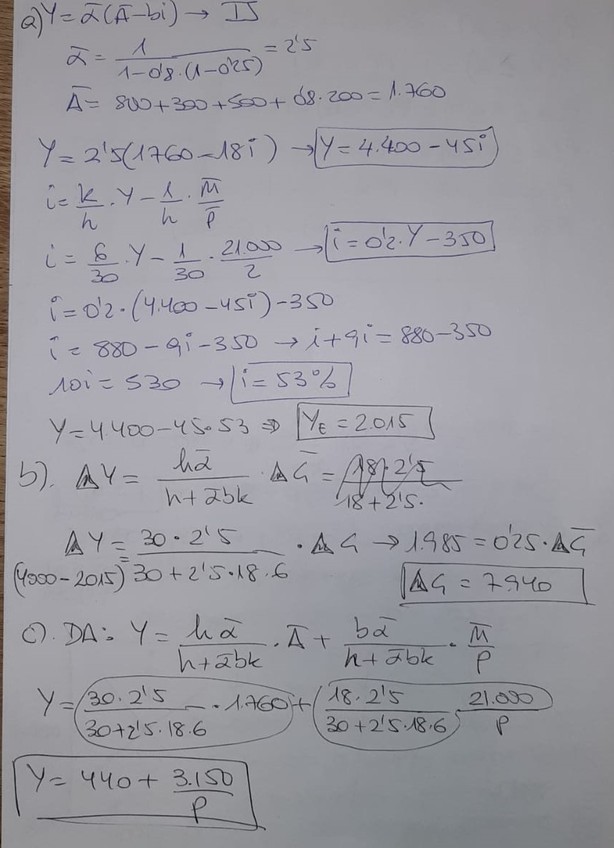 a) Y = ᾱ(Ā - bi) → IS
ᾱ = 1 / 1-0'8·(1-0'25) = 2'5
Ā = 800+300+500+0'8·200 = 1.760
Y = 2'5(1760-18i) → Y = 4.400-45i
i = k/h · Y - 1/h · M̄/P̄
i = 6/30 · Y - 1/30 · 21.000/2 → i = 0'2·Y-350
i = 0'2·(4.400-45i)-350
i = 880-9i-350 → i+9i = 880-350
10i = 530 → i = 53%
Y = 4.400-45·53 ⇒ YE = 2.015
b). ΔY = hᾱ / h+ᾱbk · ΔḠ = 18·2'5 / 18+2'5·
ΔY = 30·2'5 / 30+2'5·18·6 · ΔG → 1.985 = 0'25·ΔḠ
(4000-2015) ΔG = 7.940
c). DA: Y = hᾱ / h+ᾱbk · Ā + bᾱ / h+ᾱbk · M̄/P
Y = 30·2'5 / 30+2'5·18·6 · 1.760 + 18·2'5 / 30+2'5·18·6 · 21.000/P
Y = 440 + 3.150/P